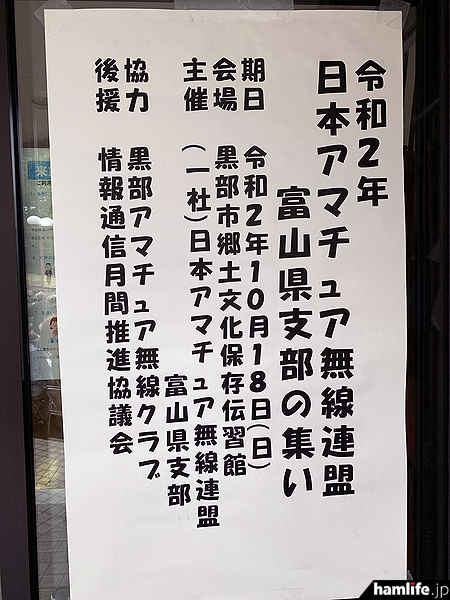 令和2年
日本アマチュア無線連盟
富山県支部の集い
期日 令和2年10月18日(日)
会場 黒部市郷土文化保存伝習館
主催 (一社)日本アマチュア無線連盟
富山県支部
協力 黒部アマチュア無線クラブ
後援 情報通信月間推進協議会
hamlife.jp